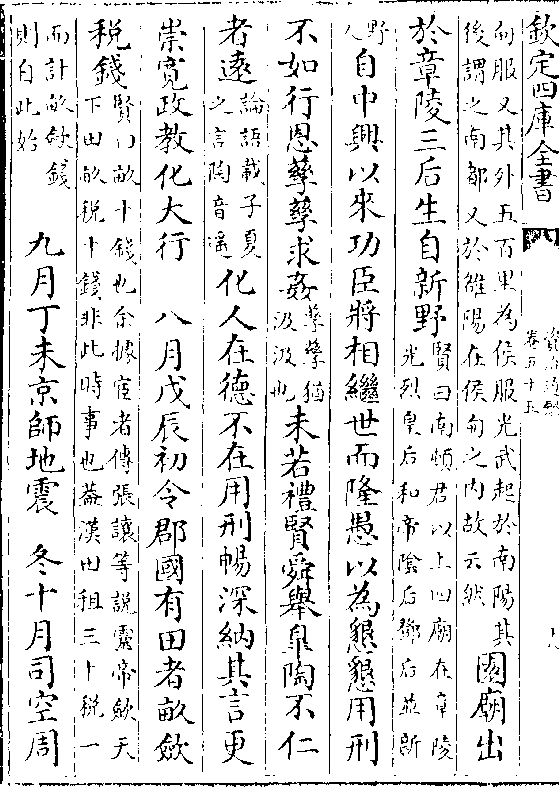 欽定四庫全書
資治通鑑
卷五十五
甸服又其外五百里為侯服光武起於南陽其
後謂之南都又於雒陽在侯甸之内故云然
園廟出
於章陵三后生自新野
賢曰南頓君以上四廟在章陵
光烈皇后和帝隂后鄧后並新
野
人
自中興以來功臣將相繼世而隆愚以為懇懇用刑
不如行恩孳孳求姦
孳孳猶
汲汲也
未若禮賢舜舉臯陶不仁
者逺
論語載子夏
之言陶音遥
化人在德不在用刑暢深納其言更
崇寛政教化大行
八月戊辰初令郡國有田者畝斂
税錢
賢曰畝十錢也余據宦者傳張讓等説靈帝斂天
下田畝税十錢非此時事也葢漢田租三十税一
而計畝斂錢
則自此始
九月丁未京師地震
冬十月司空周